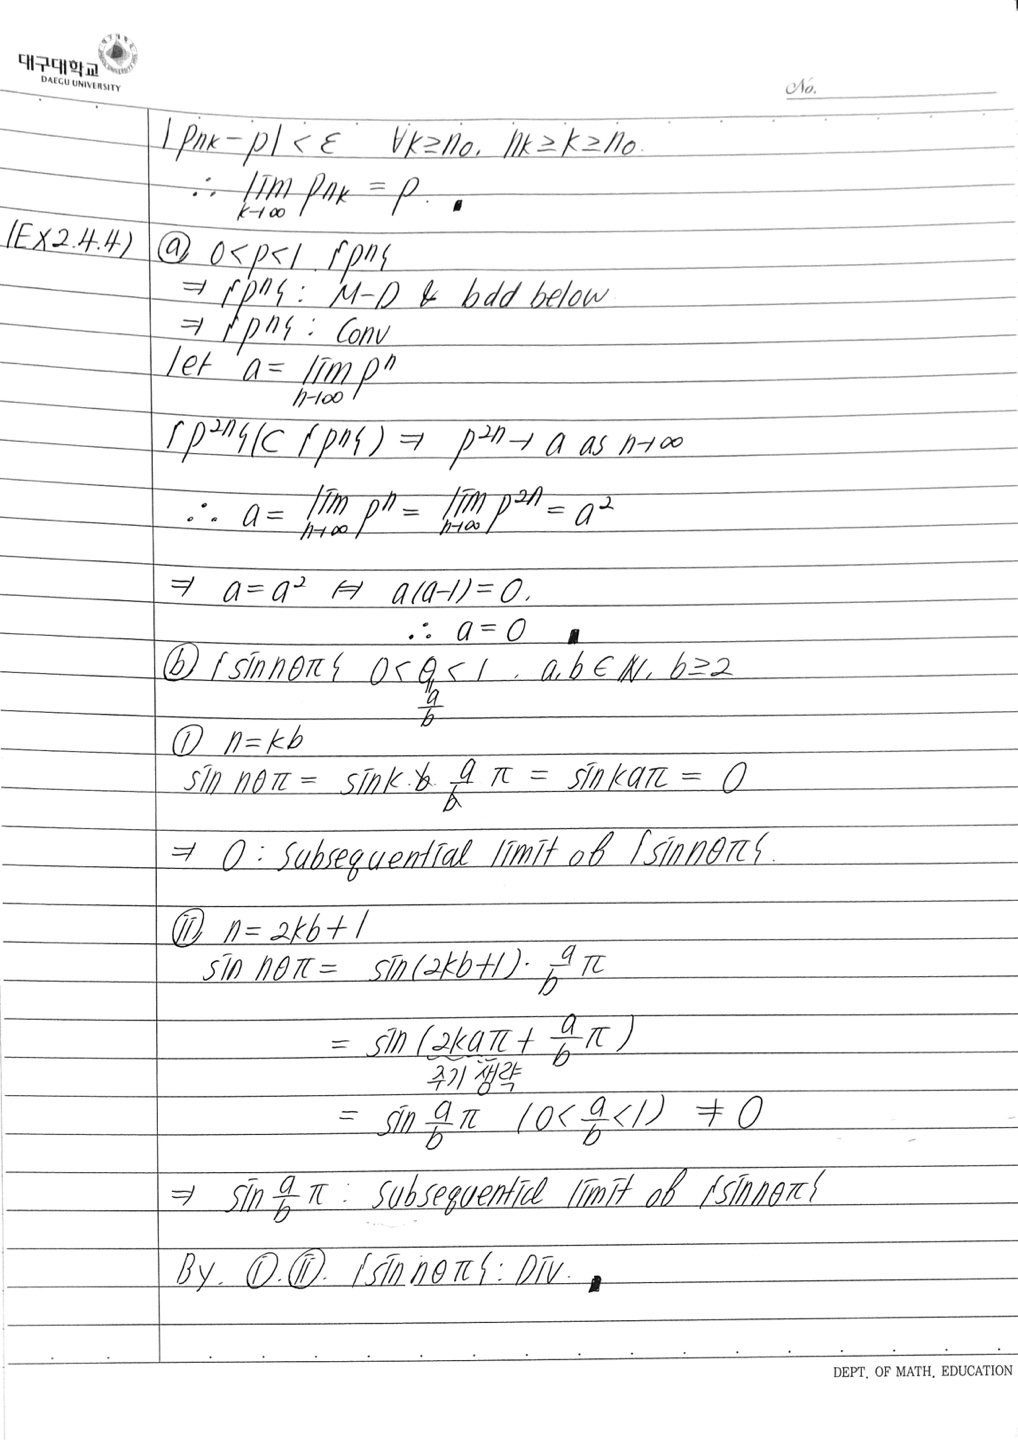 대구대학교
DAEGU UNIVERSITY
No.
|pnk - p| < ε ∀k ≥ n₀, nk ≥ k ≥ n₀.
∴ lim k→∞ pnk = p.
(EX2.4.4) ⓐ 0<p<1. {pⁿ}
⇒ {pⁿ} : M-D & bdd below
⇒ {pⁿ} : Conv
let a = lim n→∞ pⁿ
{p²ⁿ}(⊂ {pⁿ}) ⇒ p²ⁿ → a as n→∞
∴ a = lim n→∞ pⁿ = lim n→∞ p²ⁿ = a²
⇒ a = a² ⇔ a(a-1) = 0.
∴ a = 0
ⓑ {sin nθπ} 0 < θ < 1. a, b ∈ ℕ, b ≥ 2
= a/b
ⓘ n = kb
sin nθπ = sin k·b a/b π = sin kaπ = 0
⇒ 0 : subsequential limit of {sin nθπ}.
ⓘⓘ n = 2kb+1
sin nθπ = sin(2kb+1)· a/b π
= sin (2kaπ + a/b π)
주기 생략
= sin a/b π (0 < a/b < 1) ≠ 0
⇒ sin a/b π : subsequential limit of {sin nθπ}
By. ⓘ.ⓘⓘ. {sin nθπ} : Div.
DEPT. OF MATH. EDUCATION